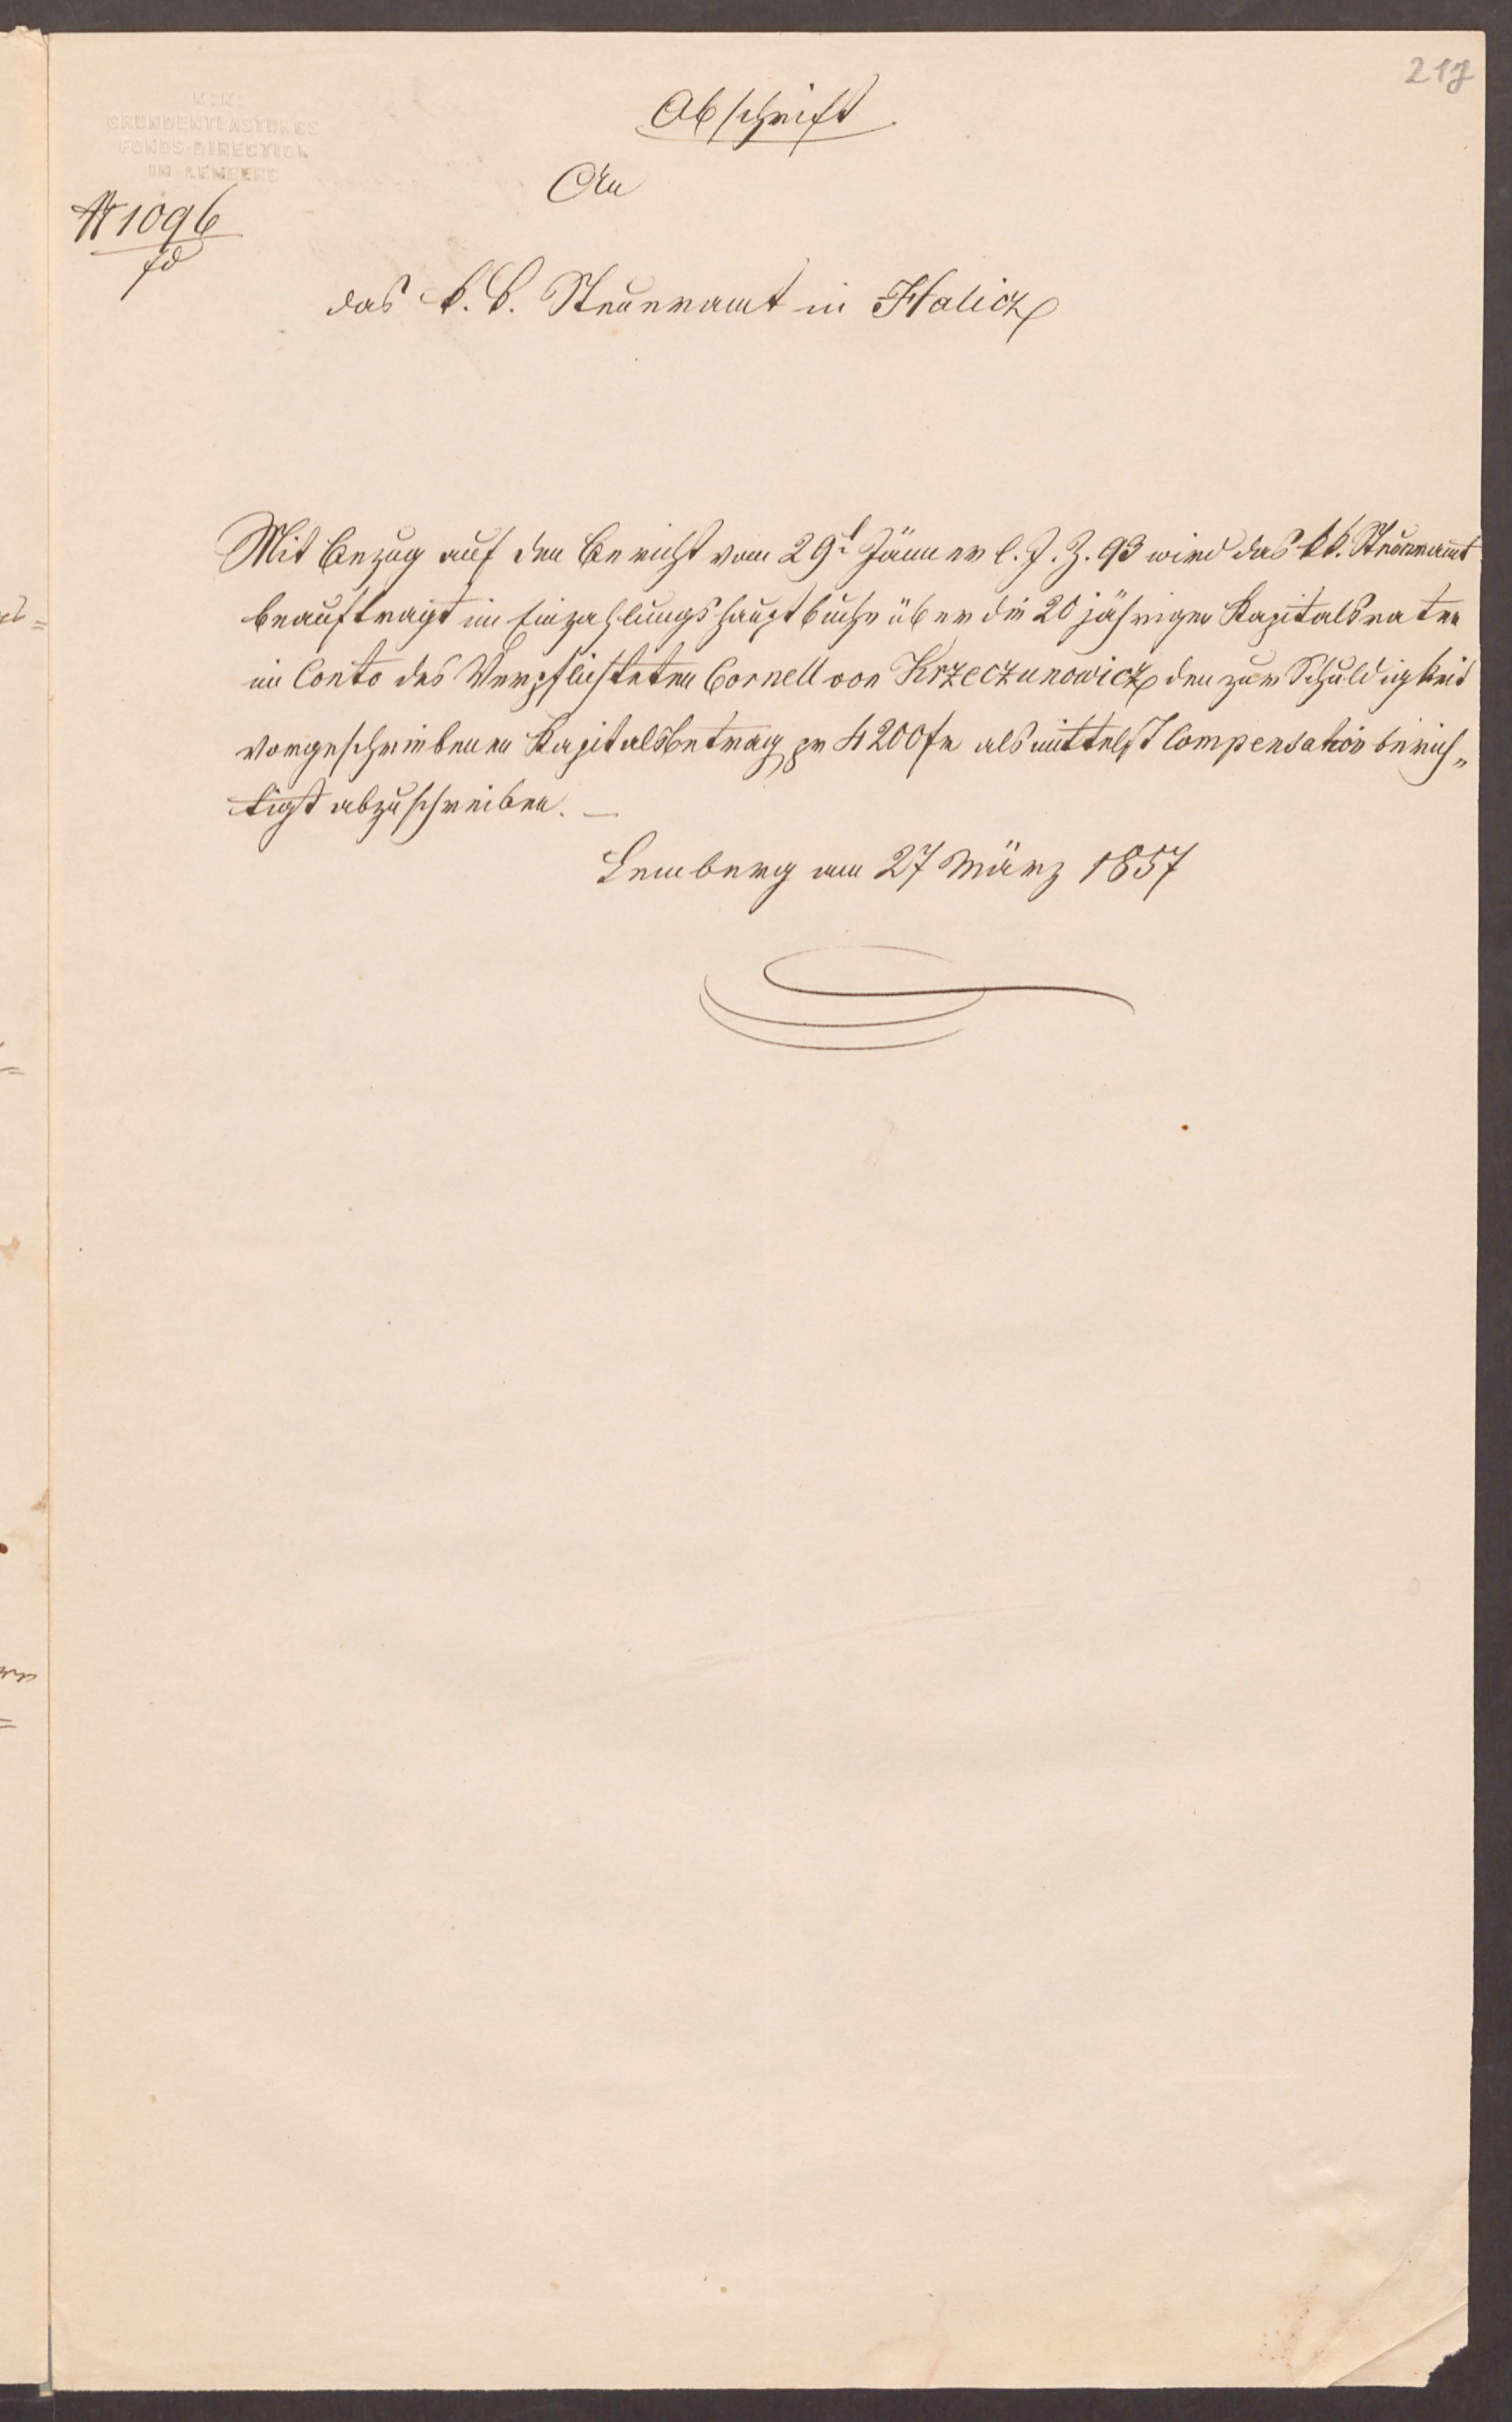 217
Abschrift
K: K:
GRUNDENTLASTUNGS
FONDS-DIRECTION
IN LEMBERG
An
№ 1096
fd
das k. k. Steueramt in Halicz
Mit Bezug auf den Bericht vom 29t Jänner l. J. Z. 93 wird das kk. Steueramt
beauftragt im Einzahlungshauptbuche über die 20 jährigen Kapitalsraten
im Conto des Verpflichteten Cornell von Krzeczunowicz den zur Schuldigkeit
vorgeschriebenen Kapitalsbetrag pr 4200 fr als mittelst Compensation berich„
tigt abzuschreiben. —
Lemberg am 27 März 1857